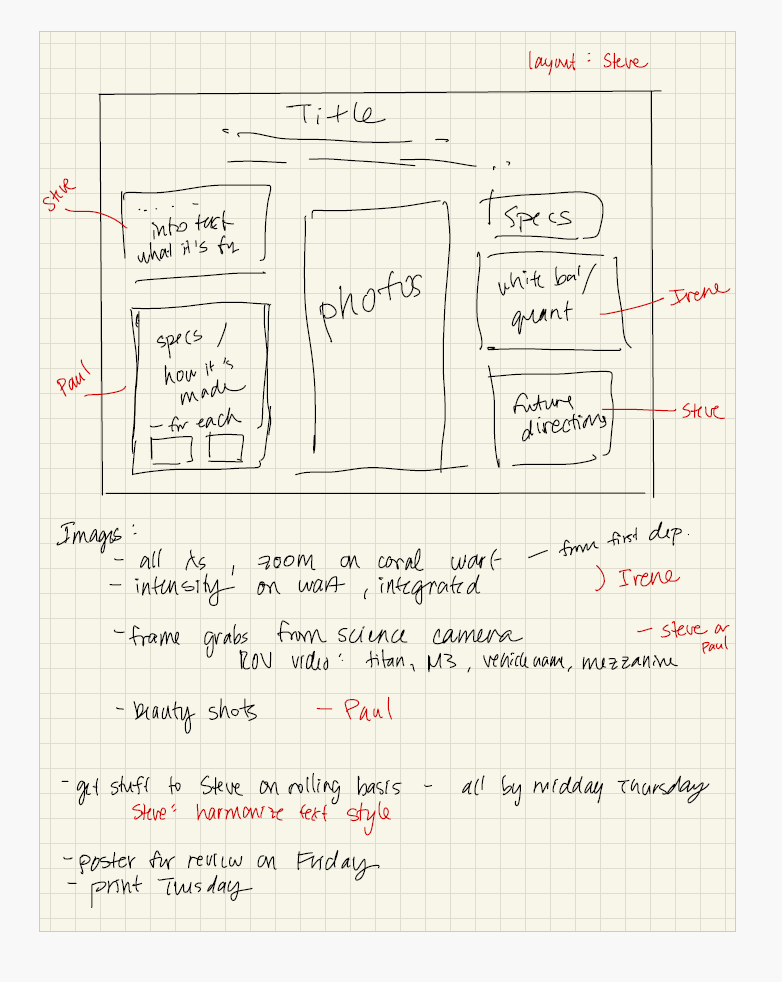 layout : Steve
Title
Steve
intro text
what it's for
Specs
photos
white bal /
quant
Irene
specs /
how it's
made
- for each
Paul
future
directions
Steve
Images :
- all λs , zoom on coral wart - from first dep.
- intensity on wart , integrated ) Irene
- frame grabs from science camera - Steve or
Paul
ROV video: titan, M3, vehicle cam, mezzanine
- beauty shots - Paul
- get stuff to Steve on rolling basis - all by midday Thursday
Steve: harmonize text style
- poster for review on Friday
- print Tuesday